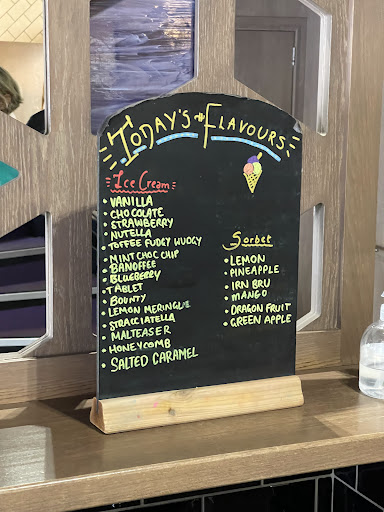 Today's Flavours
Ice Cream
• VANILLA
• CHOCOLATE
• STRAWBERRY
• NUTELLA
• TOFFEE FUDGY WUDGY
• MINT CHOC CHIP
• BANOFFEE
• BLUEBERRY
• TABLET
• BOUNTY
• LEMON MERINGUE
• STRACCIATELLA
• MALTEASER
• HONEYCOMB
• SALTED CARAMEL
Sorbet
• LEMON
• PINEAPPLE
• IRN BRU
• MANGO
• DRAGON FRUIT
• GREEN APPLE